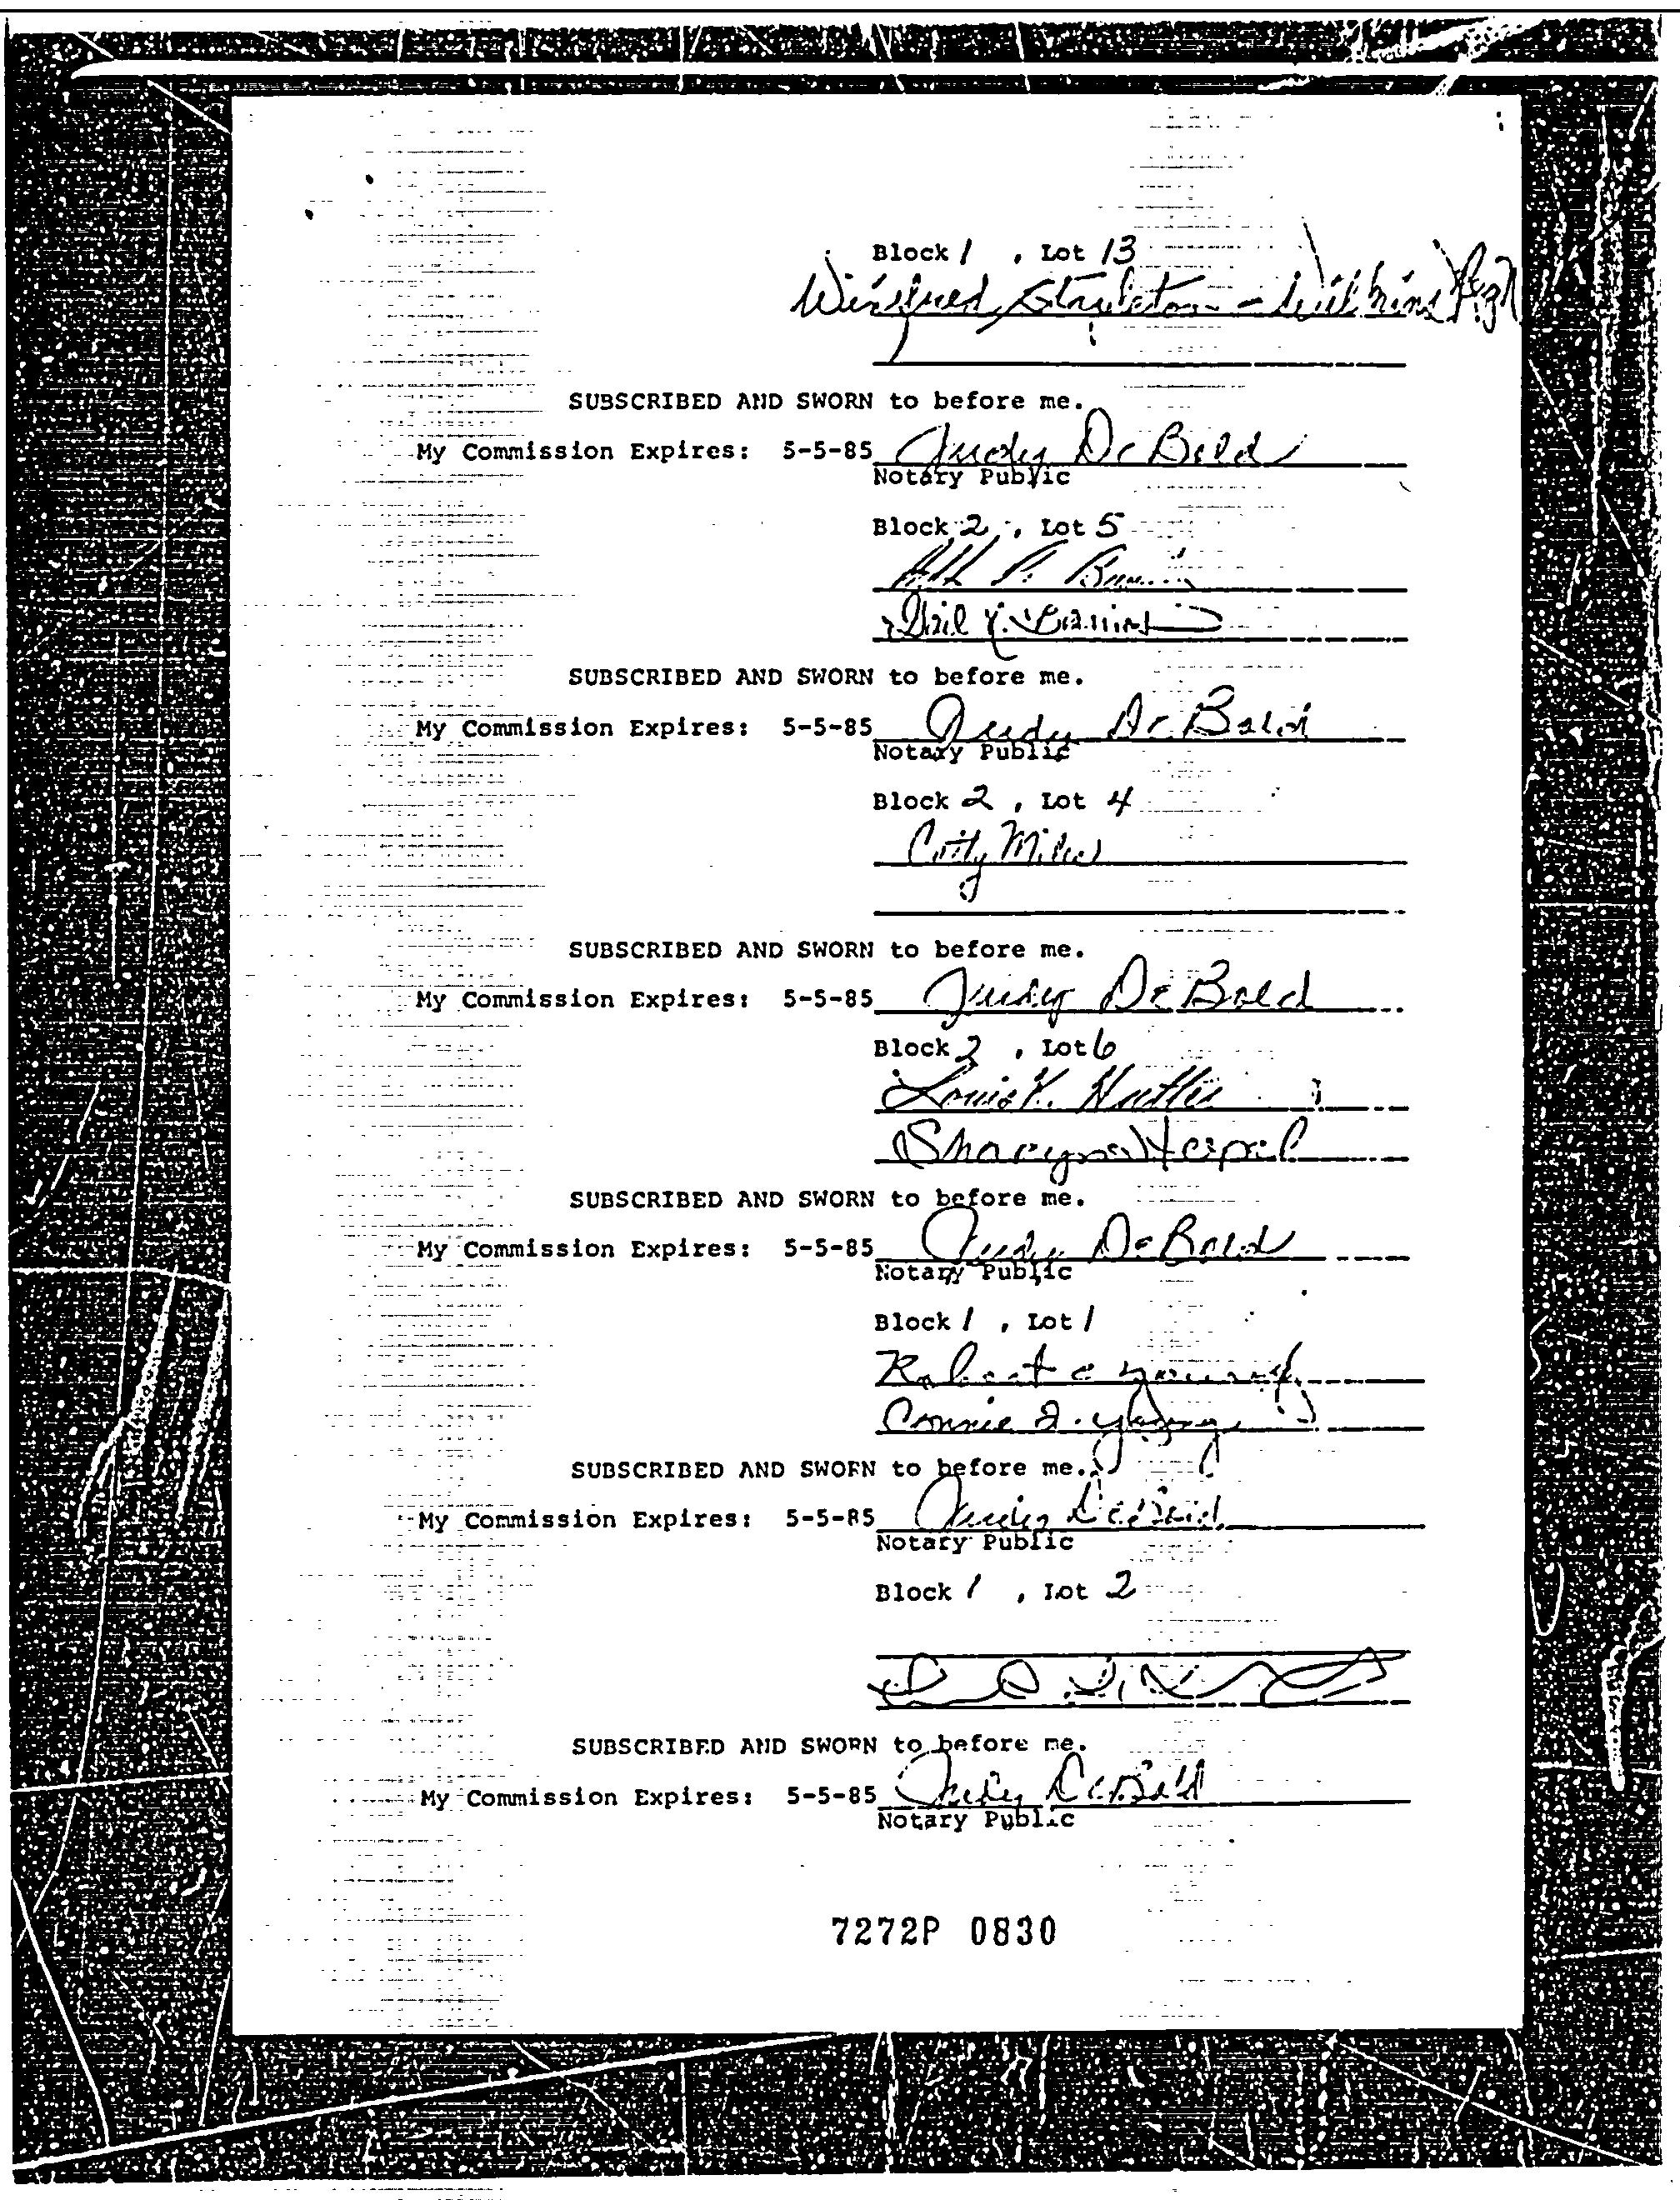 Block 1 , Lot 13
Winifred Stapleton - Wilkins Mgr
SUBSCRIBED AND SWORN to before me.
My Commission Expires: 5-5-85 Judy DeBold
Notary Public
Block 2 , Lot 5
Gail
SUBSCRIBED AND SWORN to before me.
My Commission Expires: 5-5-85 Judy DeBold
Notary Public
Block 2 , Lot 4
Cathy Miles
SUBSCRIBED AND SWORN to before me.
My Commission Expires: 5-5-85 Judy DeBold
Block 2 , Lot 6
Louis K.
Sharyn
SUBSCRIBED AND SWORN to before me.
My Commission Expires: 5-5-85 Judy DeBold
Notary Public
Block 1 , Lot 1
Robert C Young
Connie J. Young
SUBSCRIBED AND SWORN to before me.
My Commission Expires: 5-5-85 Judy DeBold
Notary Public
Block 1 , Lot 2
SUBSCRIBED AND SWORN to before me.
My Commission Expires: 5-5-85 Judy DeBold
Notary Public
7272P 0830